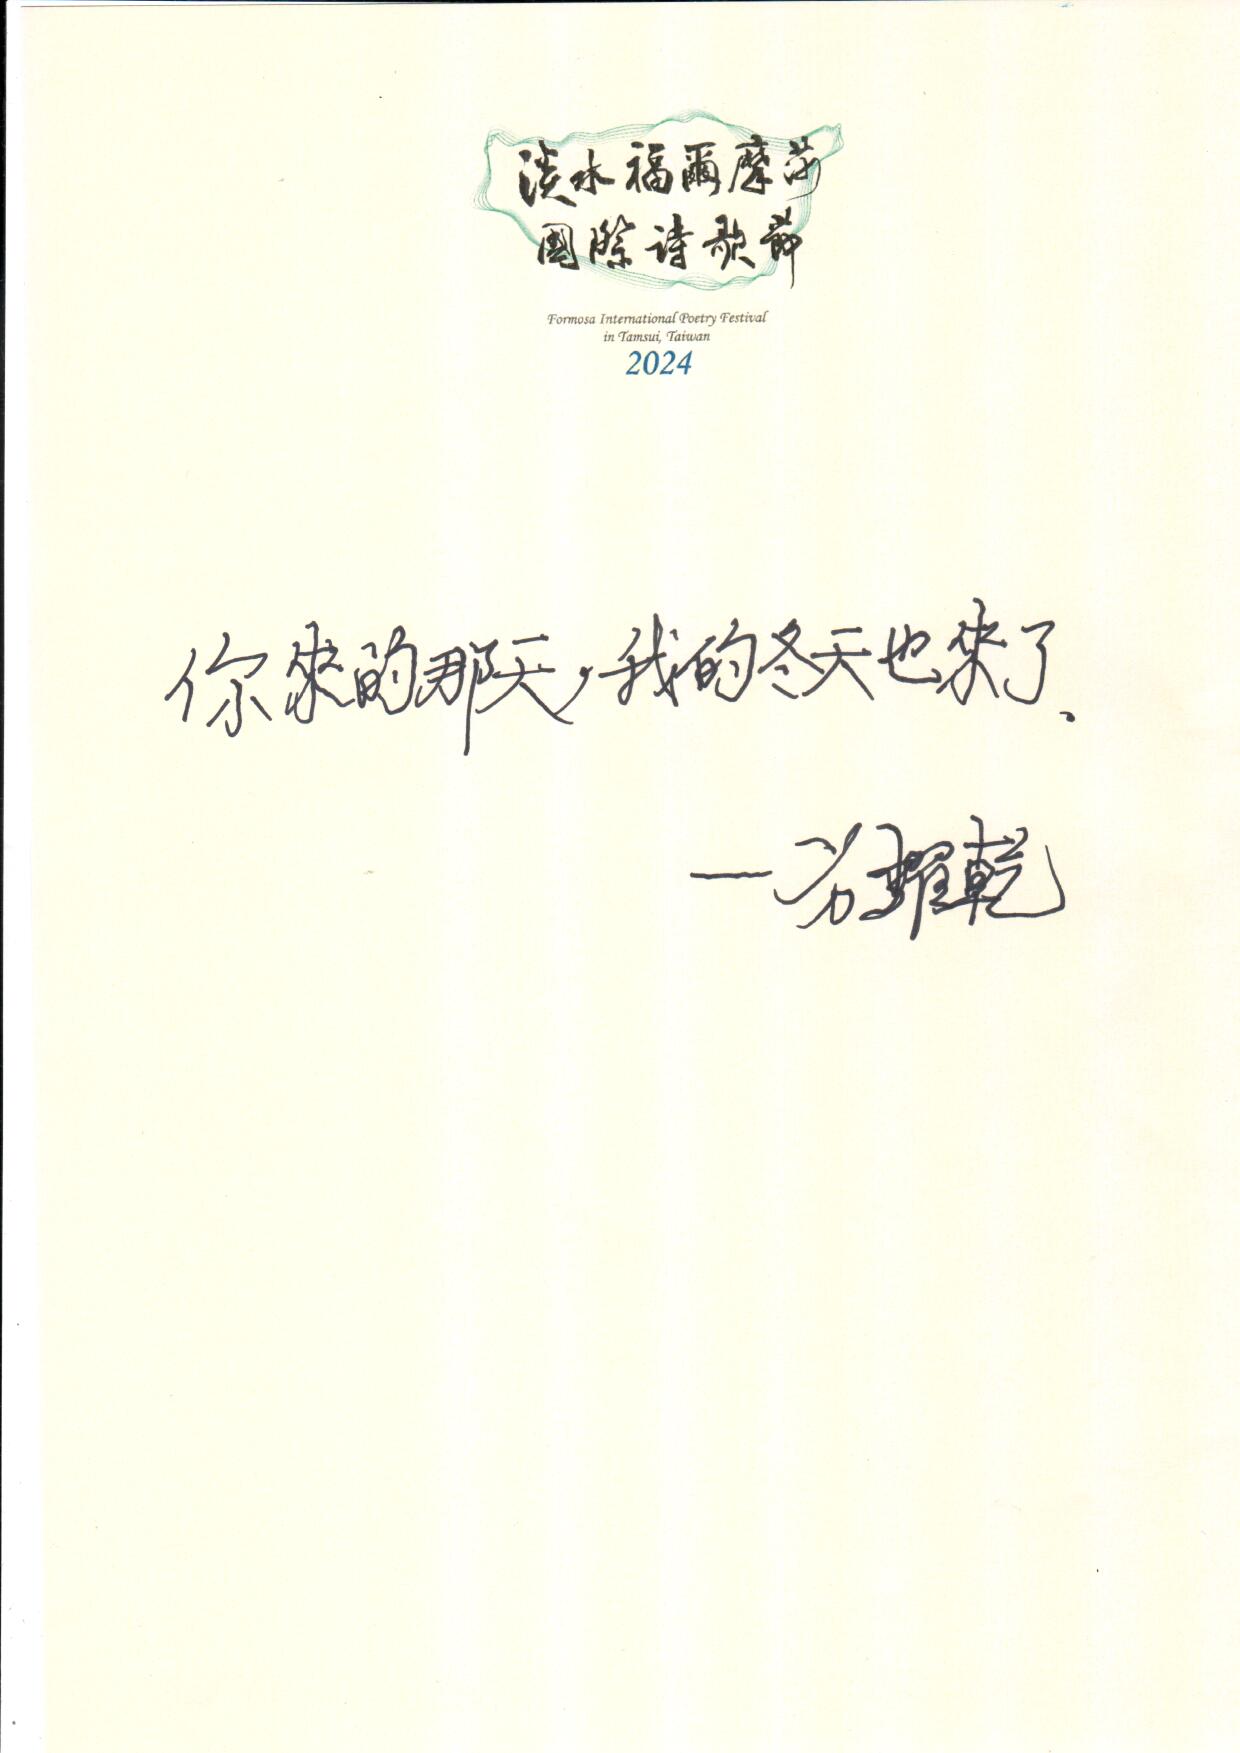 淡水福爾摩莎
國際詩歌節
Formosa International Poetry Festival
in Tamsui, Taiwan
2024
你來的那天,我的冬天也來了。
—方耀乾